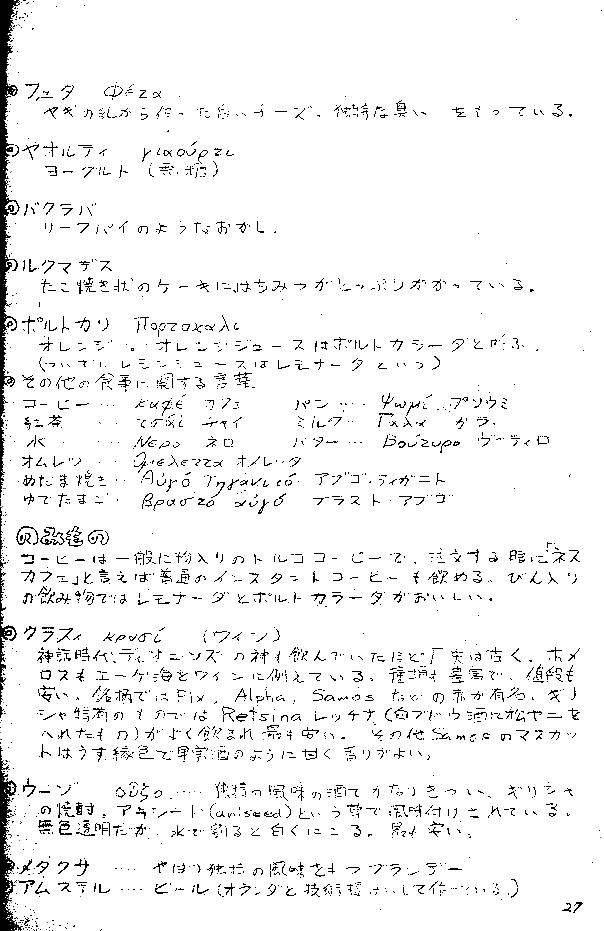 ◎フェタ Φέτα
ヤギの乳から作った白いチーズ。独特な臭いをもっている。
◎ヤオルティ γιαούρτι
ヨーグルト(無糖)
◎バクラバ
リーフパイのようなおかし。
◎ルクマデス
たこ焼き状のケーキにはちみつがとっぷりかかっている。
◎ポルトカリ Πορτοκαλι
オレンジ。オレンジジュースはポルトカラーダと呼ぶ。
(ついでにレモンジュースはレモナーダという)
◎その他の食事に関する言葉
コーヒー… καφέ カフェ パン… Ψωμί プソウミ
紅茶 … τσάι チャイ ミルク… Γαλα ガラ
水 … Νερο ネロ バター… Βούτυρο ヴーティロ
オムレツ… オムレータ
めだま焼き… Αυγό Τηγανιτό アブゴ・ティガニト
ゆでたまご… βραστό αυγό ブラスト・アブゴ
◎飲物◎
コーヒーは一般に粉入りのトルココーヒーで、注文する時に「ネス
カフェ」と言えば普通のインスタントコーヒーも飲める。びん入り
の飲み物ではレモナーダとポルトカラーダがおいしい。
◎クラスィ κρασί (ワイン)
神話時代、ディオニソスの神も飲んでいたほど歴史は古く、ホメ
ロスもエーゲ海をワインに例えている。種類も豊富で、値段も
安い。銘柄ではFix, Alpha, Samos などの赤が有名。ギリ
シャ特有のものでは Retsina レッチナ(白ブドウ酒に松ヤニを
入れたもの)がよく飲まれ最も安い。その他Samosのマスカッ
トはうす緑色で果実酒のように甘く香りがよい。
◎ウーゾ ούζο … 独特の風味の酒でかなりきつい。ギリシャ
の焼酎。アニシード(aniseed)という草で風味付けされている。
無色透明だが、水で割ると白くにごる。最も安い。
◎メタクサ … やはり独特の風味をもつブランデー
◎アムステル … ビール(オランダと技術提携して作っている。)
27